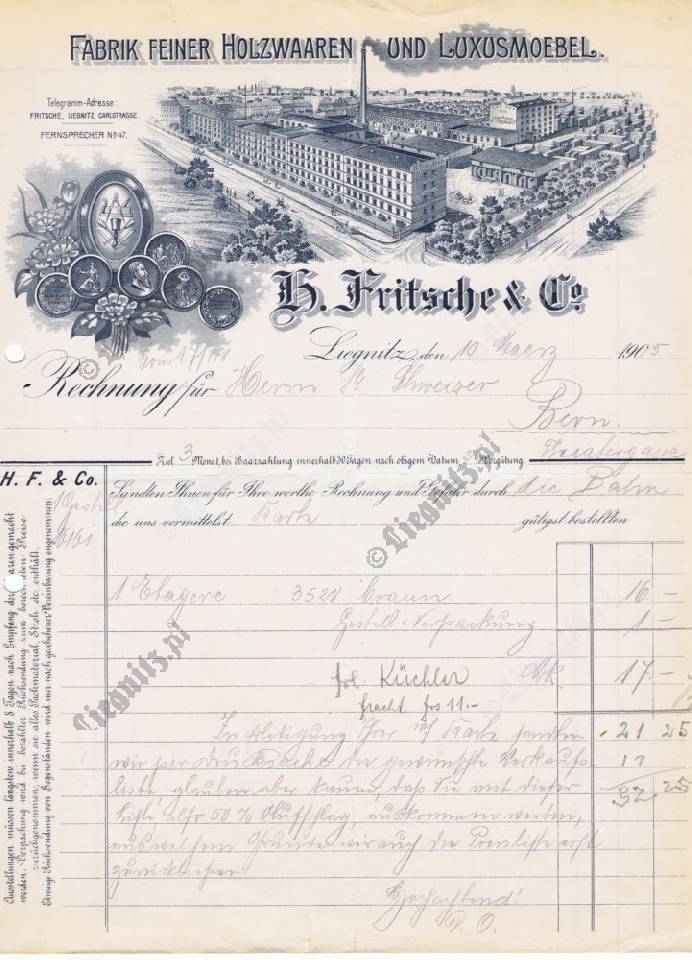 FABRIK FEINER HOLZWAAREN UND LUXUSMOEBEL.
Telegramm-Adresse:
FRITSCHE, LIEGNITZ CARLSTRASSE.
FERNSPRECHER No 47.
H. Fritsche & Co
Liegnitz, den 10 Maerz 1905
Rechnung für Herrn Schweizer
Bern.
Ziel 3 Monat, bei Baarzahlung innerhalb 30 Tagen nach obigem Datum Vergütung.
H. F. & Co.
1 Gestell
Sandten Ihnen für Ihre werthe Rechnung und Gefahr durch die Bahn
die uns vermittelst Karte gütigst bestellten
1 Etagere 3528 braun 16 –
Gestell-Verpackung 1 –
frl. Küchler Mk 17.–
fracht frs 11.–
In Erledigung Ihrer Karte senden 21 25
wir per Drucksache die gewünschte Verkaufs- 11
liste, glauben aber kaum, daß Sie mit dieser 32.25
Liste, also 50% Aufschlag, auskommen werden,
aus welchem Grunde wir auch die Preisliste erst
Hochachtend!
Ausstellungen müssen längstens innerhalb 8 Tagen nach Empfang der Waaren gemacht
werden. Verpackung wird bei bezahlter Rücksendung zum berechneten Preise
zurückgenommen, wenn sie alles Packmaterial, Stroh etc. enthält.
Etwaige Rücksendung von Gegenständen wird nur nach geschehener Vereinbarung angenommen.
© Liegnitz.pl
© Liegnitz.pl
Liegnitz.pl